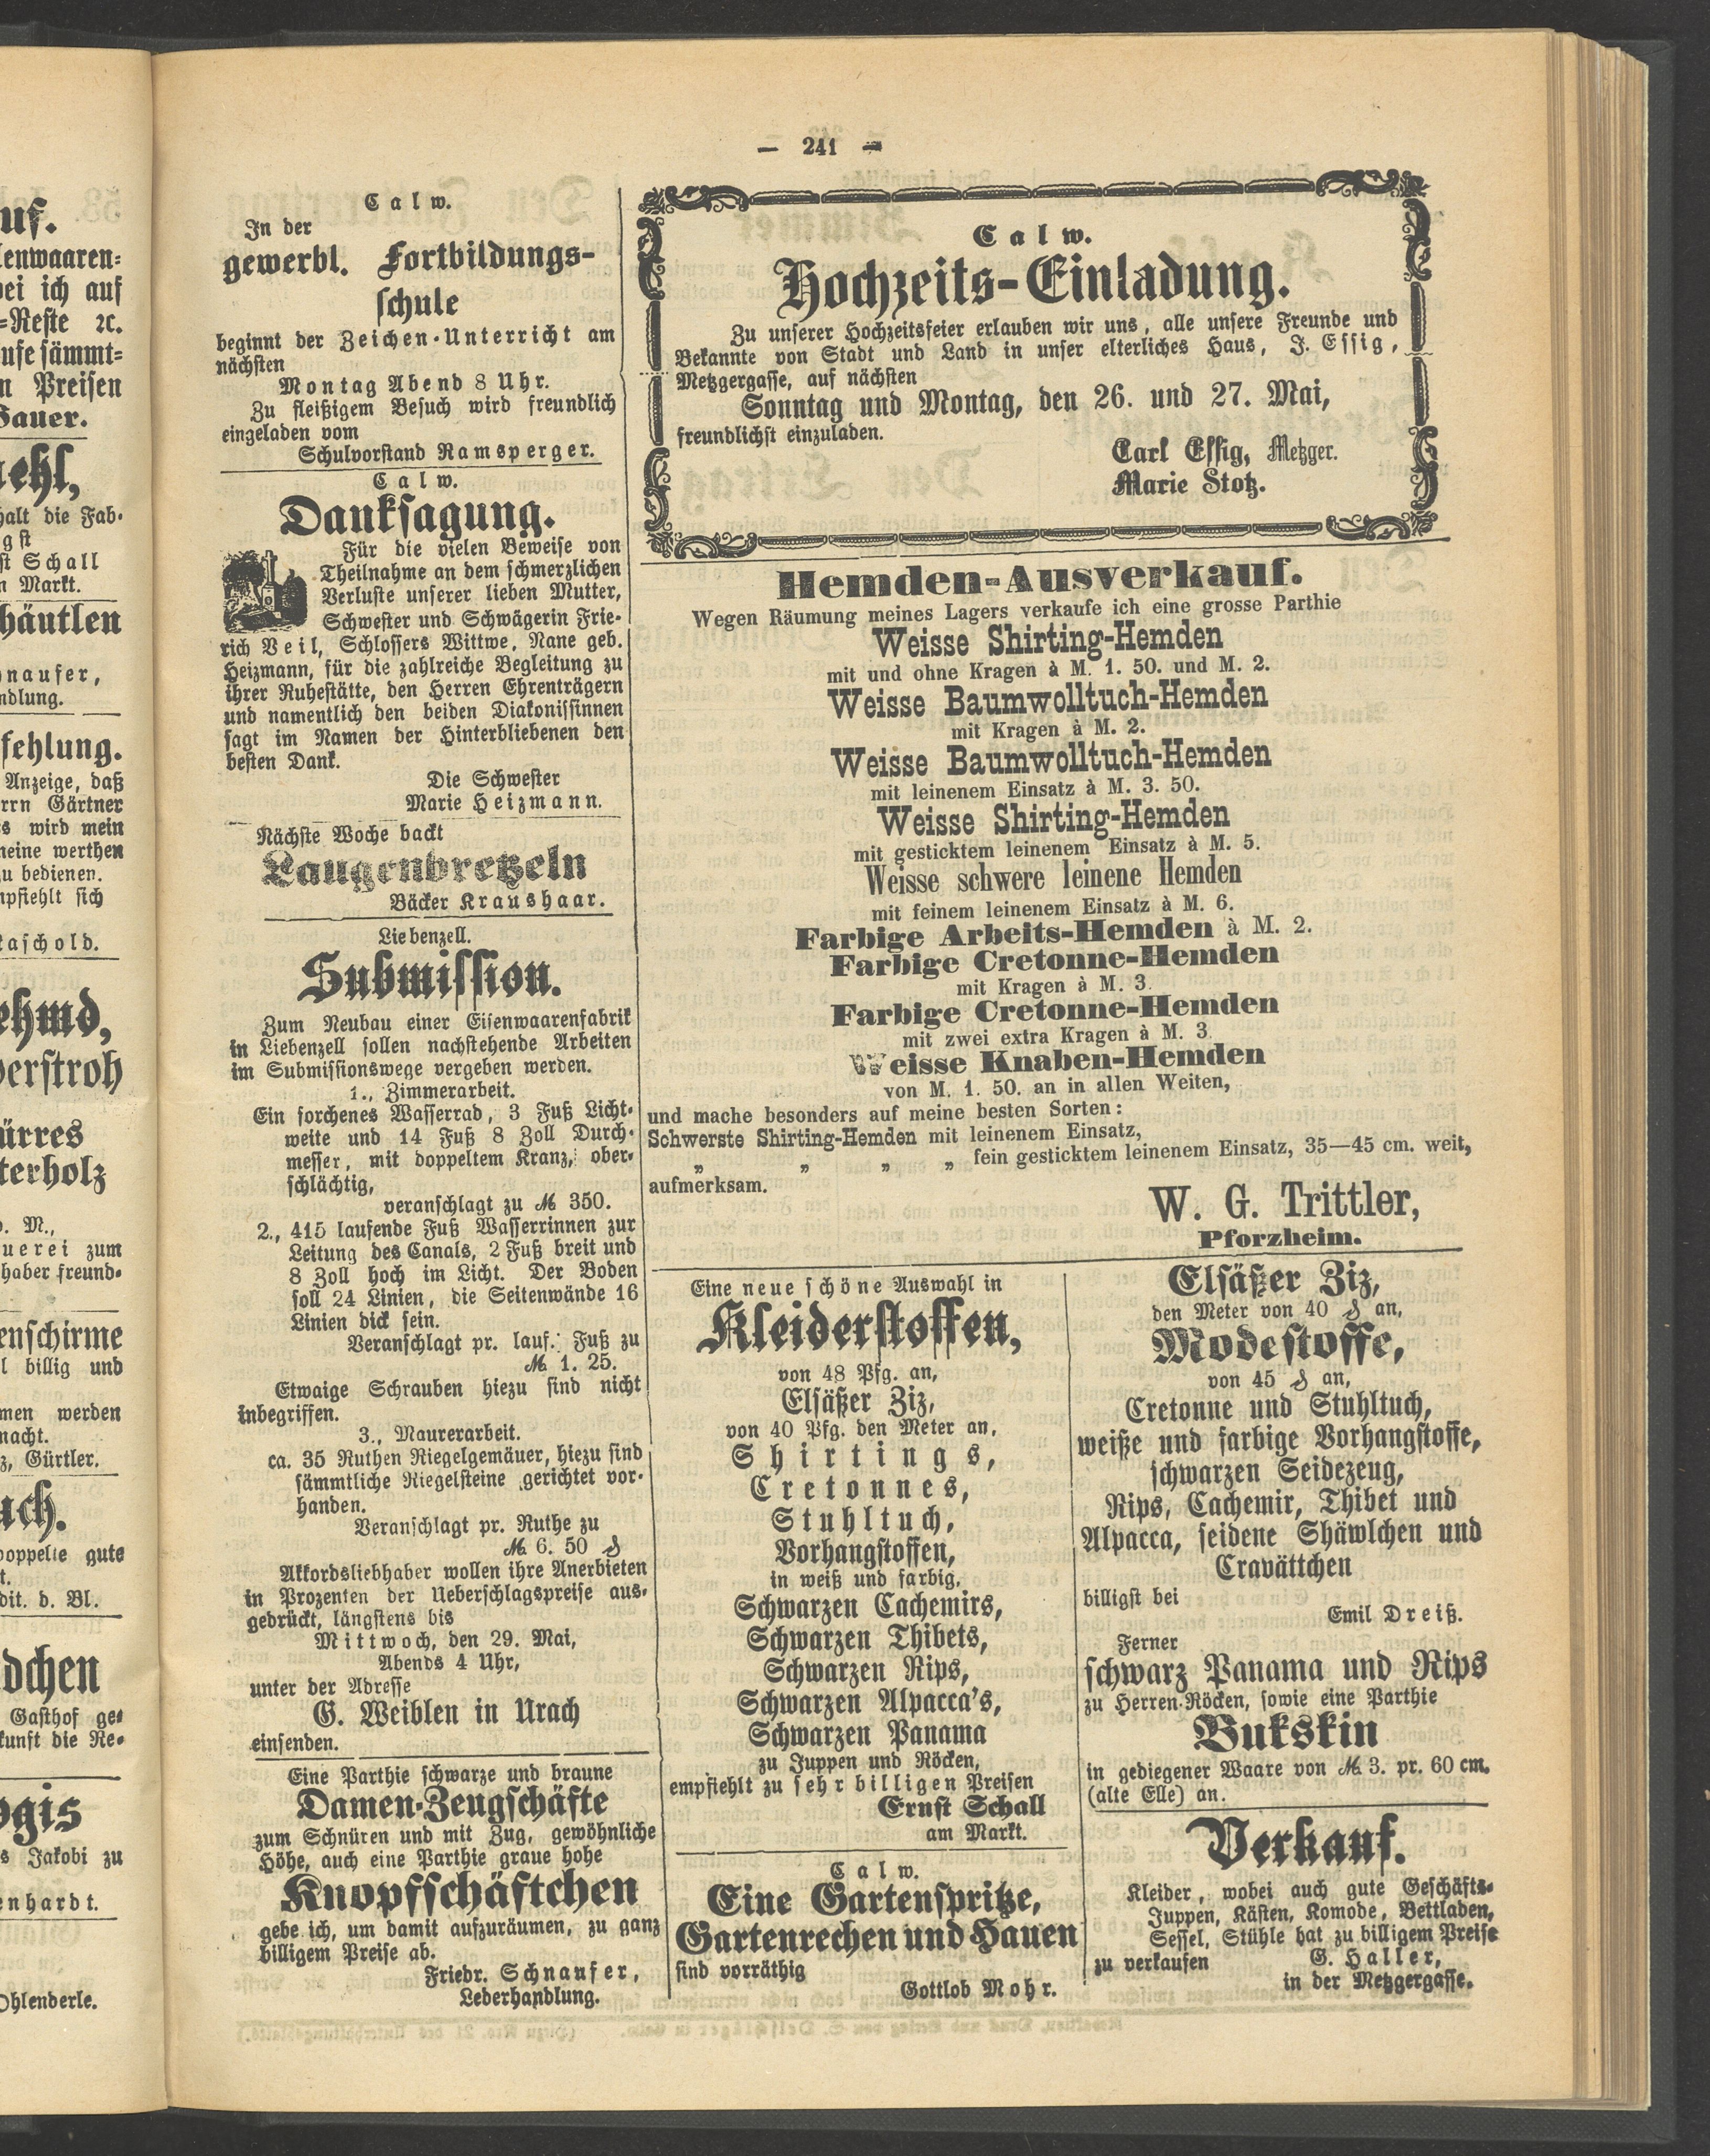 — 241 —
Calw.
In der
gewerbl. Fortbildungs-
schule
beginnt der Zeichen-Unterricht am
nächsten
Montag Abend 8 Uhr.
Zu fleißigem Besuch wird freundlich
eingeladen vom
Schulvorstand Ramsperger.
Calw.
Danksagung.
Für die vielen Beweise von
Theilnahme an dem schmerzlichen
Verluste unserer lieben Mutter,
Schwester und Schwägerin Frie-
rich Veil, Schlossers Wittwe, Nane geb.
Heizmann, für die zahlreiche Begleitung zu
ihrer Ruhestätte, den Herren Ehrenträgern
und namentlich den beiden Diakonissinnen
sagt im Namen der Hinterbliebenen den
besten Dank.
Die Schwester
Marie Heizmann.
Nächste Woche backt
Laugenbretzeln
Bäcker Kraushaar.
Liebenzell.
Submission.
Zum Neubau einer Eisenwaarenfabrik
in Liebenzell sollen nachstehende Arbeiten
im Submissionswege vergeben werden.
1., Zimmerarbeit.
Ein forchenes Wasserrad, 3 Fuß Licht-
weite und 14 Fuß 8 Zoll Durch-
messer, mit doppeltem Kranz, ober-
schlächtig,
veranschlagt zu ℳ 350.
2., 415 laufende Fuß Wasserrinnen zur
Leitung des Canals, 2 Fuß breit und
8 Zoll hoch im Licht. Der Boden
soll 24 Linien, die Seitenwände 16
Linien dick sein.
Veranschlagt pr. lauf. Fuß zu
ℳ 1. 25.
Etwaige Schrauben hiezu sind nicht
inbegriffen.
3., Maurerarbeit.
ca. 35 Ruthen Riegelgemäuer, hiezu sind
sämmtliche Riegelsteine gerichtet vor-
handen.
Veranschlagt pr. Ruthe zu
ℳ 6. 50 ₰
Akkordsliebhaber wollen ihre Anerbieten
in Prozenten der Ueberschlagspreise aus-
gedrückt, längstens bis
Mittwoch, den 29. Mai,
Abends 4 Uhr,
unter der Adresse
G. Weiblen in Urach
einsenden.
Eine Parthie schwarze und braune
Damen-Zeugschäfte
zum Schnüren und mit Zug, gewöhnliche
Höhe, auch eine Parthie graue hohe
Knopfschäftchen
gebe ich, um damit aufzuräumen, zu ganz
billigem Preise ab.
Friedr. Schnaufer,
Lederhandlung.
Calw.
Hochzeits-Einladung.
Zu unserer Hochzeitsfeier erlauben wir uns, alle unsere Freunde und
Bekannte von Stadt und Land in unser elterliches Haus, J. Essig,
Metzgergasse, auf nächsten
Sonntag und Montag, den 26. und 27. Mai,
freundlichst einzuladen.
Carl Essig, Metzger.
Marie Stotz.
Hemden-Ausverkauf.
Wegen Räumung meines Lagers verkaufe ich eine grosse Parthie
Weisse Shirting-Hemden
mit und ohne Kragen à M. 1. 50. und M. 2.
Weisse Baumwolltuch-Hemden
mit Kragen à M. 2.
Weisse Baumwolltuch-Hemden
mit leinenem Einsatz à M. 3. 50.
Weisse Shirting-Hemden
mit gesticktem leinenem Einsatz à M. 5.
Weisse schwere leinene Hemden
mit feinem leinenem Einsatz à M. 6.
Farbige Arbeits-Hemden à M. 2.
Farbige Cretonne-Hemden
mit Kragen à M. 3.
Farbige Cretonne-Hemden
mit zwei extra Kragen à M. 3.
Weisse Knaben-Hemden
von M. 1. 50. an in allen Weiten,
und mache besonders auf meine besten Sorten:
Schwerste Shirting-Hemden mit leinenem Einsatz,
„ „ „ „ fein gesticktem leinenem Einsatz, 35—45 cm. weit,
aufmerksam.
W. G. Trittler,
Pforzheim.
Eine neue schöne Auswahl in
Kleiderstoffen,
von 48 Pfg. an,
Elsäßer Ziz,
von 40 Pfg. den Meter an,
Shirtings,
Cretonnes,
Stuhltuch,
Vorhangstoffen,
in weiß und farbig,
Schwarzen Cachemirs,
Schwarzen Thibets,
Schwarzen Rips,
Schwarzen Alpacca's,
Schwarzen Panama
zu Juppen und Röcken,
empfiehlt zu sehr billigen Preisen
Ernst Schall
am Markt.
Calw.
Eine Gartenspritze,
Gartenrechen und Hauen
sind vorräthig
Gottlob Mohr.
Elsäßer Ziz,
den Meter von 40 ₰ an,
Modestoffe,
von 45 ₰ an,
Cretonne und Stuhltuch,
weiße und farbige Vorhangstoffe,
schwarzen Seidezeug,
Rips, Cachemir, Thibet und
Alpacca, seidene Shäwlchen und
Cravättchen
billigst bei
Emil Dreiß.
Ferner
schwarz Panama und Rips
zu Herren-Röcken, sowie eine Parthie
Bukskin
in gediegener Waare von ℳ 3. pr. 60 cm.
(alte Elle) an.
Verkauf.
Kleider, wobei auch gute Geschäfts-
Juppen, Kästen, Komode, Bettladen,
Sessel, Stühle hat zu billigem Preise
zu verkaufen G. Haller,
in der Metzgergasse.